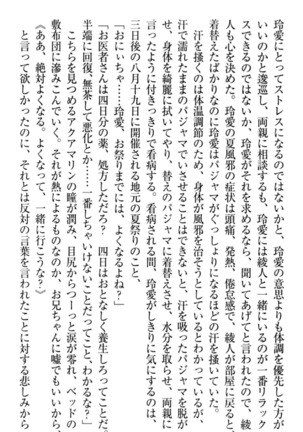 玲愛にとってストレスになるのではないかと、玲愛の意思よりも体調を優先した方が
いいのかと逡巡し、両親に相談すると、玲愛は綾人と一緒にいるのが一番リラック
スできるのではないか、玲愛がそれを求めるなら、聞いてあげてと言われたので、綾
人も心を決めた。玲愛の夏風邪の症状は頭痛、発熱、倦怠感で、綾人が部屋に戻ると、
着替えたばかりなのに玲愛はパジャマがぐっしょりになるほどの汗を掻いていた。
汗を掻くのは体温調節のため、身体が風邪を治そうとしているとわかっているが、
汗で濡れたままのパジャマでいさせることはできないと、汗を吸ったパジャマを脱が
せ、身体を綺麗に拭いてやり、替えのパジャマに着替えさせ、水分を取らせ、両親に
言ったように付きっきりで看病する。看病される間、玲愛がしきりに気にするのは、
三日後の八月十九日に開催される地元の夏祭りのこと。
「おにぃちゃ……玲愛、お祭りまでには、よくなるよね?」
「お医者さんは四日分の薬、処方しただろ? 四日はおとなしく養生しろってことだ。
半端に回復、無茶して悪化とか……一番しちゃいけないことだってこと、わかるな?」
こちらを見つめるアクアマリンの瞳が潤み、目尻からつーっと涙が零れ、ベッドの
敷布団に滲みこんでいく。それが熱によるものなのか、お兄ちゃんに嘘でもいいから、
《ああ、絶対よくなる。よくなって、一緒に行こうな?》
と言って欲しかったのに、それとは反対の言葉を言われたことに対する悲しみから